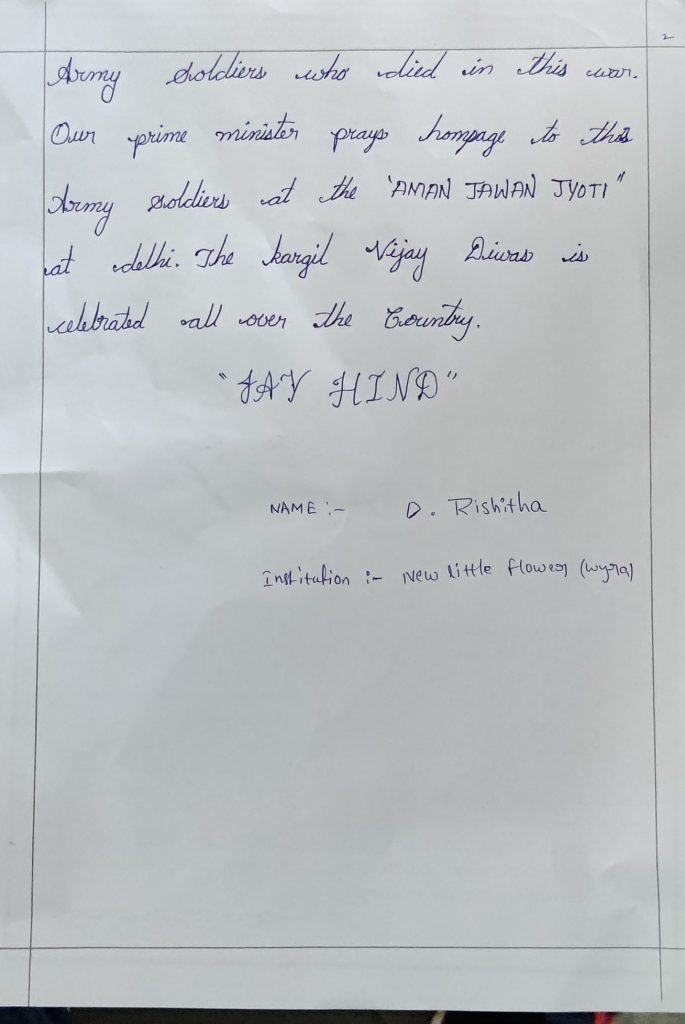 2
Army soldiers who died in this war.
Our prime minister prays hompage to this
Army soldiers at the 'AMAN JAWAN JYOTI"
at delhi. The kargil Vijay Diwas is
celebrated all over the Country.
"JAY HIND"
NAME :- D. Rishitha
Institution :- New little flower (wyra)